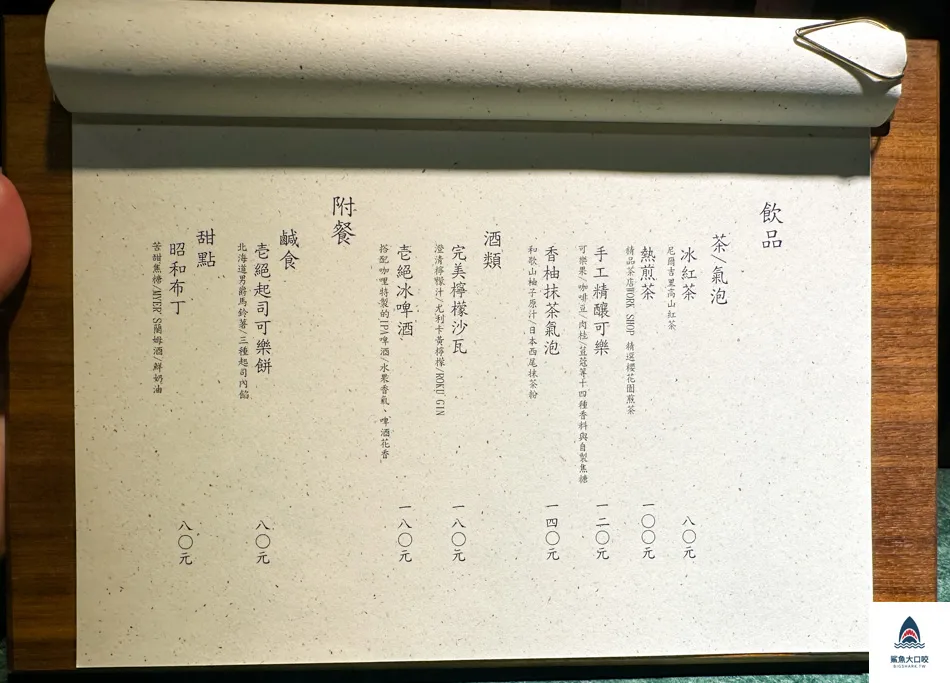 飲品
茶/氣泡
冰紅茶 八〇元
尼爾吉里高山紅茶
熱煎茶 一〇〇元
精品茶店WORK SHOP 精選櫻花園煎茶
手工精釀可樂 一二〇元
可樂果/咖啡豆/肉桂/荳蔻等十四種香料與自製焦糖
香柚抹茶氣泡 一四〇元
和歌山柚子原汁/日本西尾抹茶粉
酒類
完美檸檬沙瓦 一八〇元
澄清檸檬汁/尤利卡黃檸檬/ROKU GIN
壱絕冰啤酒 一八〇元
搭配咖哩特製的IPA啤酒/水果香氣、啤酒花香
附餐
鹹食
壱絕起司可樂餅 八〇元
北海道男爵馬鈴薯/三種起司內餡
甜點
昭和布丁 八〇元
苦甜焦糖/MYER'S蘭姆酒/鮮奶油
鯊魚大口咬
BIGSHARK.TW